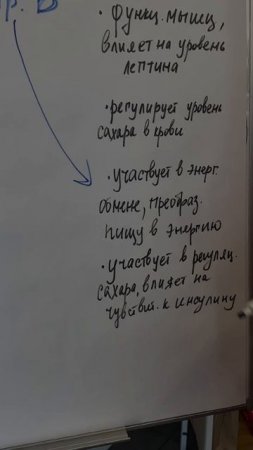 гр. В
• Функц. мышц,
влияет на уровень
лептина
• регулирует уровень
сахара в крови
• участвует в энерг.
обмене, преобраз.
пищу в энергию
• участвует в регуляц.
сахара, влияет на
чувствит. к инсулину